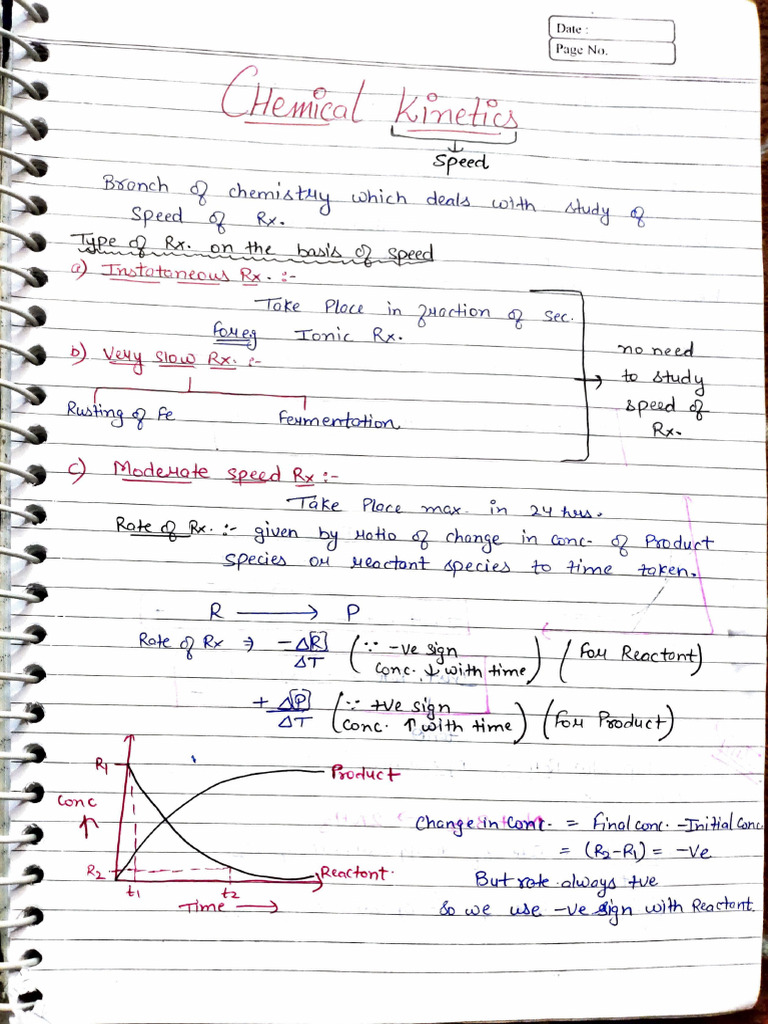 Date :
Page No.
CHemical Kinetics
Speed
Branch of chemistry which deals with study of
Speed of Rx.
Type of Rx. on the basis of speed
a) Instataneous Rx. :-
Take Place in fraction of sec.
foreg Ionic Rx.
b) Very slow Rx. :-
Rusting of Fe Fermentation
no need
to study
speed of
Rx.
c) Moderate speed Rx :-
Take Place max. in 24 hrs.
Rate of Rx. :- given by ratio of change in conc. of Product
species or reactant species to time taken.
R ⟶ P
Rate of Rx ⇒ -Δ[R]/ΔT (∵ -ve sign conc. ↓ with time) (For Reactant)
+Δ[P]/ΔT (∵ +ve sign conc. ↑ with time) (For Product)
R1
Product
Conc ↑
R2
Reactant.
t1 t2
Time ⟶
Change in conc. = Final conc. - Initial Conc
= (R2-R1) = -ve
But rate always +ve
So we use -ve sign with Reactant.